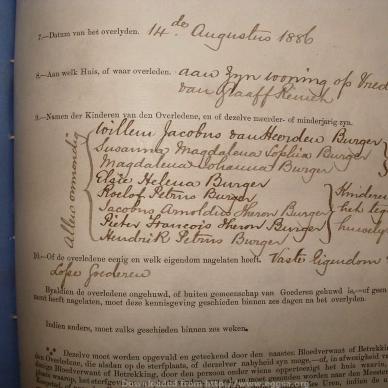 7.—Datum van het overlyden. 14de Augustus 1886
8.—Aan welk Huis, of waar overleden. aan zyn woning op Vred
van Graaff Reinet
9.—Namen der Kinderen van den Overledene, en of dezelve meerder- of minderjarig zyn.
Willem Jacobus van Heerden Burger
Susanna Magdalena Sophia Burger
Magdalena Johanna Burger
Elsie Helena Burger
Roelof Petrus Burger
Jacobus Arnoldus Theron Burger
Pieter Francois Theron Burger
Hendrik Petrus Burger
Allen onmondig
Kinderen
het
huwely
10.—Of de overledene eenig en welk eigendom nagelaten heeft. Vaste Eigendom
Losse Goederen
Byaldien de overledene ongehuwd, of buiten gemeenschap van Goederen gehuwd is,—of geen
heeft nagelaten, moet deze kennisgeving geschieden binnen zes dagen na het overlyden.
Indien anders, moet zulks geschieden binnen zes weken.
** Dezelve moet worden opgevuld en geteekend door den naasten Bloedverwant of Betrekking
den Overledene, die alsdan op de sterfplaats, of derzelver nabyheid zyn moge,—of, in afwezigheid v
Bloedverwant of Betrekking, door den persoon onder wiens opperteezigt het huis waarin
plaats waarop, het sterfgeval
Downloaded from http://www.eggsa.org/